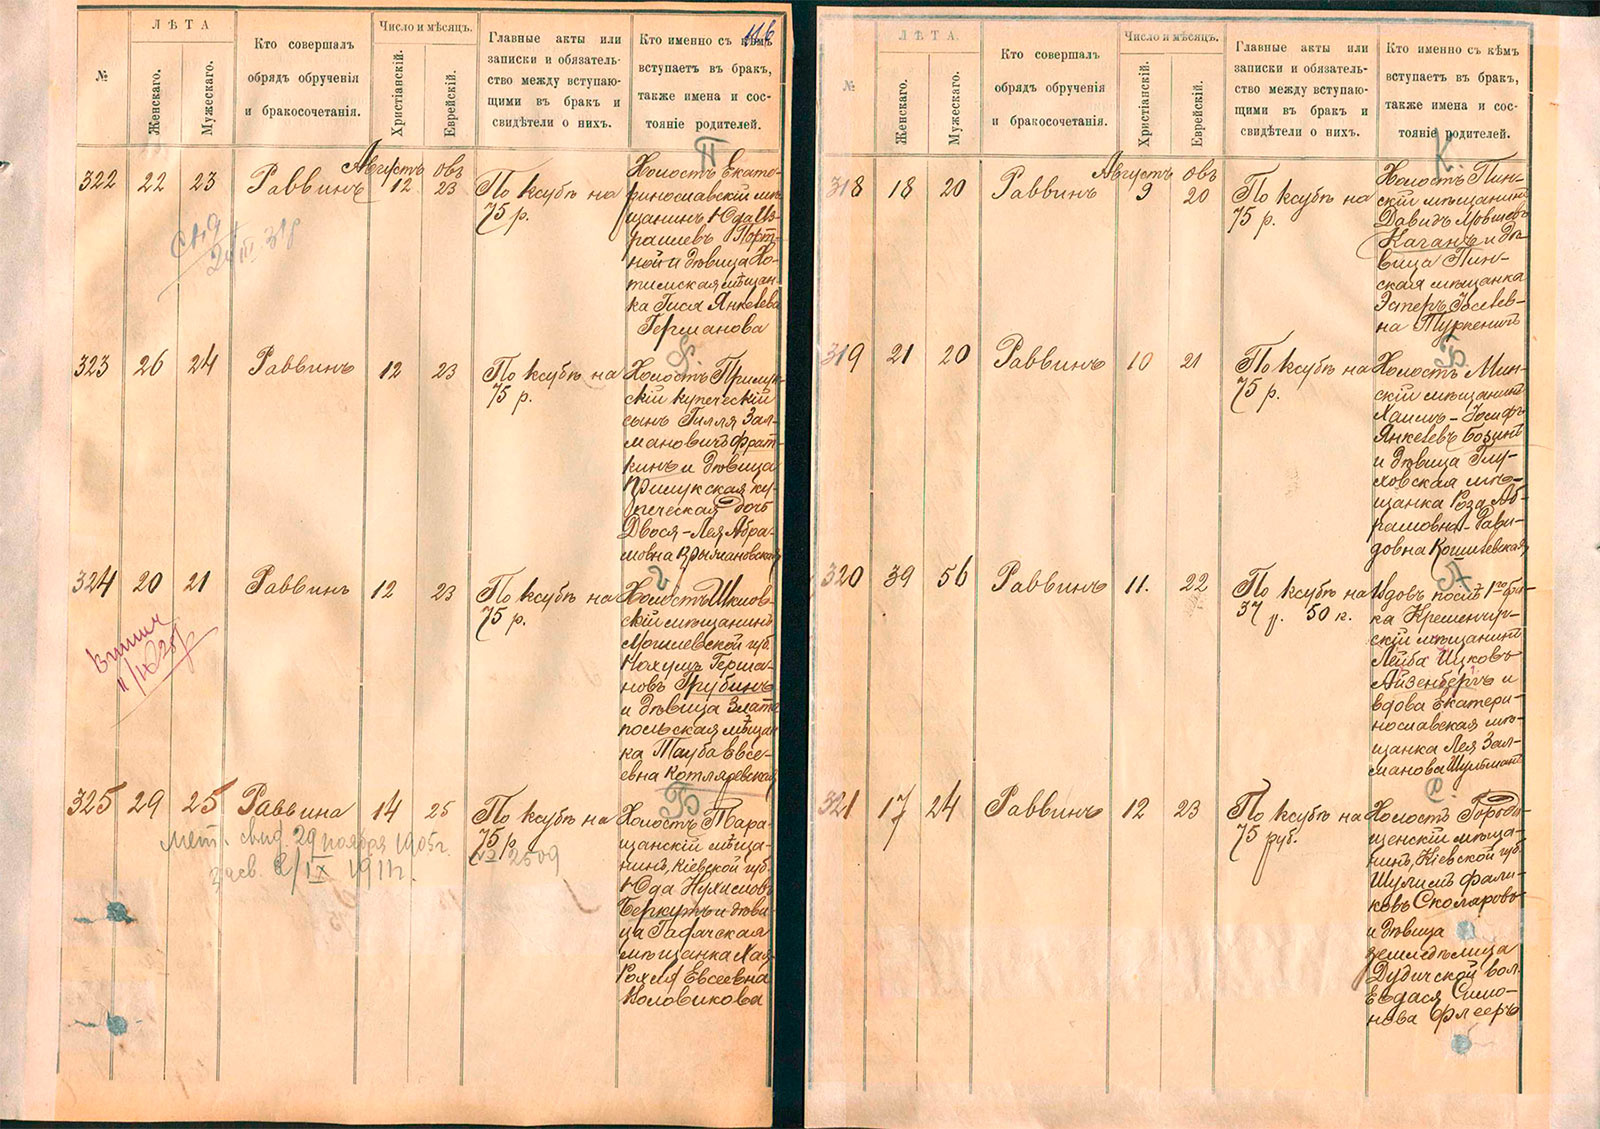 116
№
ЛѢТА
Женскаго.
Мужескаго.
Кто совершалъ
обрядъ обрученія
и бракосочетанія.
Число и мѣсяцъ.
Христіанскій.
Еврейскій.
Главные акты или
записки и обязатель-
ство между вступаю-
щими въ бракъ и
свидѣтели о нихъ.
Кто именно съ кѣмъ
вступаетъ въ бракъ,
также имена и сос-
тояніе родителей.
П
Августъ Овъ
322 22 23 Раввинъ 12 23
По ксубѣ на
75 р.
Холостъ Екате-
ринославскій мѣ-
щанинъ Юда Из-
раилевъ Порт-
ной и дѣвица Хо-
тимская мѣщан-
ка Гися Янкелева
Германова
323 26 24 Раввинъ 12 23
По ксубѣ на
75 р.
Ф.
Холостъ Прилук-
скій купеческій
сынъ Гилля Зал-
мановичъ Фрат-
кинъ и дѣвица
Прилукская ку-
печеская дочь
Двося-Лея Абра-
мовна Крымановская
324 20 21 Раввинъ 12 23
По ксубѣ на
75 р.
Г
Холостъ Шклов-
скій мѣщанинъ
Могилевской губ.
Нохумъ Герша-
новъ Грубинъ
и дѣвица Злато-
польская мѣщан
ка Тауба Евсе-
евна Котляревская
325 29 25 Раввина 14 25
По ксубѣ на
75 р.
Б
Холостъ Тара-
щанскій мѣща-
нинъ, Кіевской губ.
Юда Нухимовъ
Беркутъ и дѣви
ца Гадячская
мѣщанка Хая-
Рохля Евсеевна
Коловикова
Мет. свид. 29 ноября 1905 г.
№ 2509
засв. 2/IX 1911 г.
№
ЛѢТА.
Женскаго.
Мужескаго.
Кто совершалъ
обрядъ обрученія
и бракосочетанія.
Число и мѣсяцъ.
Христіанскій.
Еврейскій.
Главные акты или
записки и обязатель-
ство между вступаю-
щими въ бракъ и
свидѣтели о нихъ.
Кто именно съ кѣмъ
вступаетъ въ бракъ,
также имена и сос-
тояніе родителей.
К.
Августъ Овъ
318 18 20 Раввинъ 9 20
По ксубѣ на
75 р.
Холостъ Пин-
скій мѣщанинъ
Давидъ Мовшовъ
Каганъ и дѣ-
вица Пин-
ская мѣщанка
Эстеръ Іоселев-
на Туркеничъ
319 21 20 Раввинъ 10 21
По ксубѣ на
75 р.
Б
Холостъ Мин-
скій мѣщанинъ
Хаимъ-Іосифъ
Янкелевъ Бозинъ
и дѣвица Глу-
ховская мѣ-
щанка Роза Аб-
рамовна-Дави-
довна Кошелевская
320 39 56 Раввинъ 11. 22
По ксубѣ на
37 р. 50 к.
А
Вдовъ послѣ 1го бра
ка Кременчуг-
скій мѣщанинъ
Лейба Ицковъ
Айзенбергъ и
вдова Екатери-
нославская мѣ-
щанка Лея Зал-
манова Шульманъ
321 17 24 Раввинъ 12 23
По ксубѣ на
75 руб.
С
Холостъ Городи-
щенскій мѣща-
нинъ, Кіевской губ.
Шулимъ Фали-
ковъ Сколяровъ
и дѣвица
земледѣлица
Дудичской вол.
Евдася Симо-
нова Флееръ